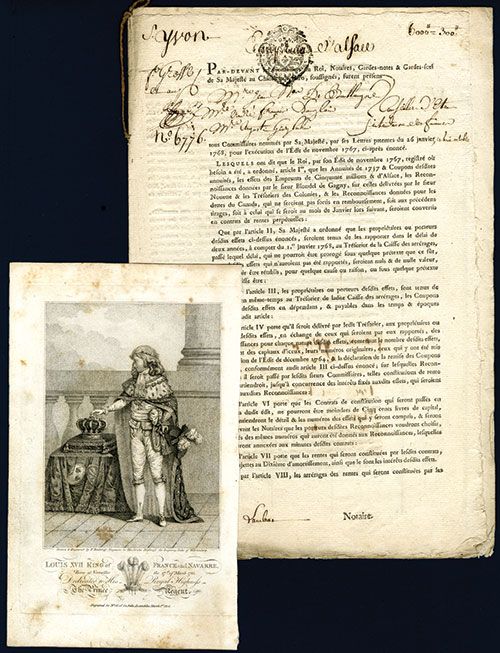 Yvon
d'alsace
6000 = 300
N° 6776
PAR-DEVANT les Conseillers du Roi, Notaires, Gardes-notes & Gardes-scel
de Sa Majesté au Châtelet de Paris, soussignés, furent présens
tous Commissaires nommés par Sa Majesté, par ses Lettres patentes du 26 janvier
1768, pour l'exécution de l'Édit de novembre 1767, ci-après énoncé.
LESQUELS ont dit que le Roi, par son Édit de novembre 1767, registré où
besoin a été, a ordonné, article I.er, que les Annuités de 1757 & Coupons desdites
annuités, les effets des Emprunts de Cinquante millions & d'Alsace, les Recon-
noissances données par le sieur Blondel de Gagny, sur celles délivrées par le sieur
Nouette & les Trésoriers des Colonies, & les Reconnoissances données pour les
dettes du Canada, qui ne seroient pas sortis en remboursement, soit aux précédens
tirages, soit à celui qui se feroit au mois de Janvier lors suivant, seroient convertis
en contrats de rentes perpétuelles:
Que par l'article II, Sa Majesté a ordonné que les propriétaires ou porteurs
desdits effets ci-dessus énoncés, seroient tenus de les rapporter dans le délai de
deux années, à compter du 1.er janvier 1768, au Trésorier de la Caisse des arrérages,
passé lequel délai, qui ne pourroit être prorogé sous quelque prétexte que ce fût,
effets qui n'auroient pas été rapportés, seroient nuls & de nulle valeur,
être rétablis, pour quelque cause ou raison, ou sous quelque prétexte
isse être:
l'article III, les propriétaires ou porteurs desdits effets, sont tenus de
en même-temps au Trésorier de ladite Caisse des arrérages, les Coupons
desdits effets en dépendant, & payables dans les temps & époques
udit article:
article IV porte qu'il sera délivré par ledit Trésorier, aux propriétaires ou
desdits effets, en échange de ceux qui seront par eux rapportés, des
ances pour chaque nature desdits effets, contenant le nombre desdits effets,
ant des capitaux d'iceux, leurs numéros originaires, ceux qui y ont été mis
on de l'Édit de décembre 1764, & la déclaration de la remise des Coupons
conformément audit article III ci-dessus énoncé, sur lesquelles Reconnois-
il seroit passé par lesdits sieurs Commissaires, telles constitutions de rente
viendroit, jusqu'à concurrence des intérêts fixés auxdits effets, qui seroient
auxdites Reconnoissances:
l'article VI porte que les Contrats de constitution qui seront passés en
dudit édit, ne pourront être moindres de Cinq cens livres de capital,
tiendront le détail & les numéros des effets qui y seront compris, & seront
vant les Notaires que les porteurs desdites Reconnoissances voudront choisir,
s des mêmes numéros qui auront été donnés aux Reconnoissances, lesquelles
ront annexées auxdits contrats:
l'article VII porte que les rentes qui seront constituées par lesdits contrats,
sujettes au Dixième d'amortissement, ainsi que le sont les intérêts desdits effets:
par l'article VIII, les arrérages des rentes qui seront constituées par les
Notaire.
LOUIS XVII KING of FRANCE and NAVARRE,
Born at Versailles the 27th of March 1785
Dedicated to His Royal Highness
The Prince Regent.